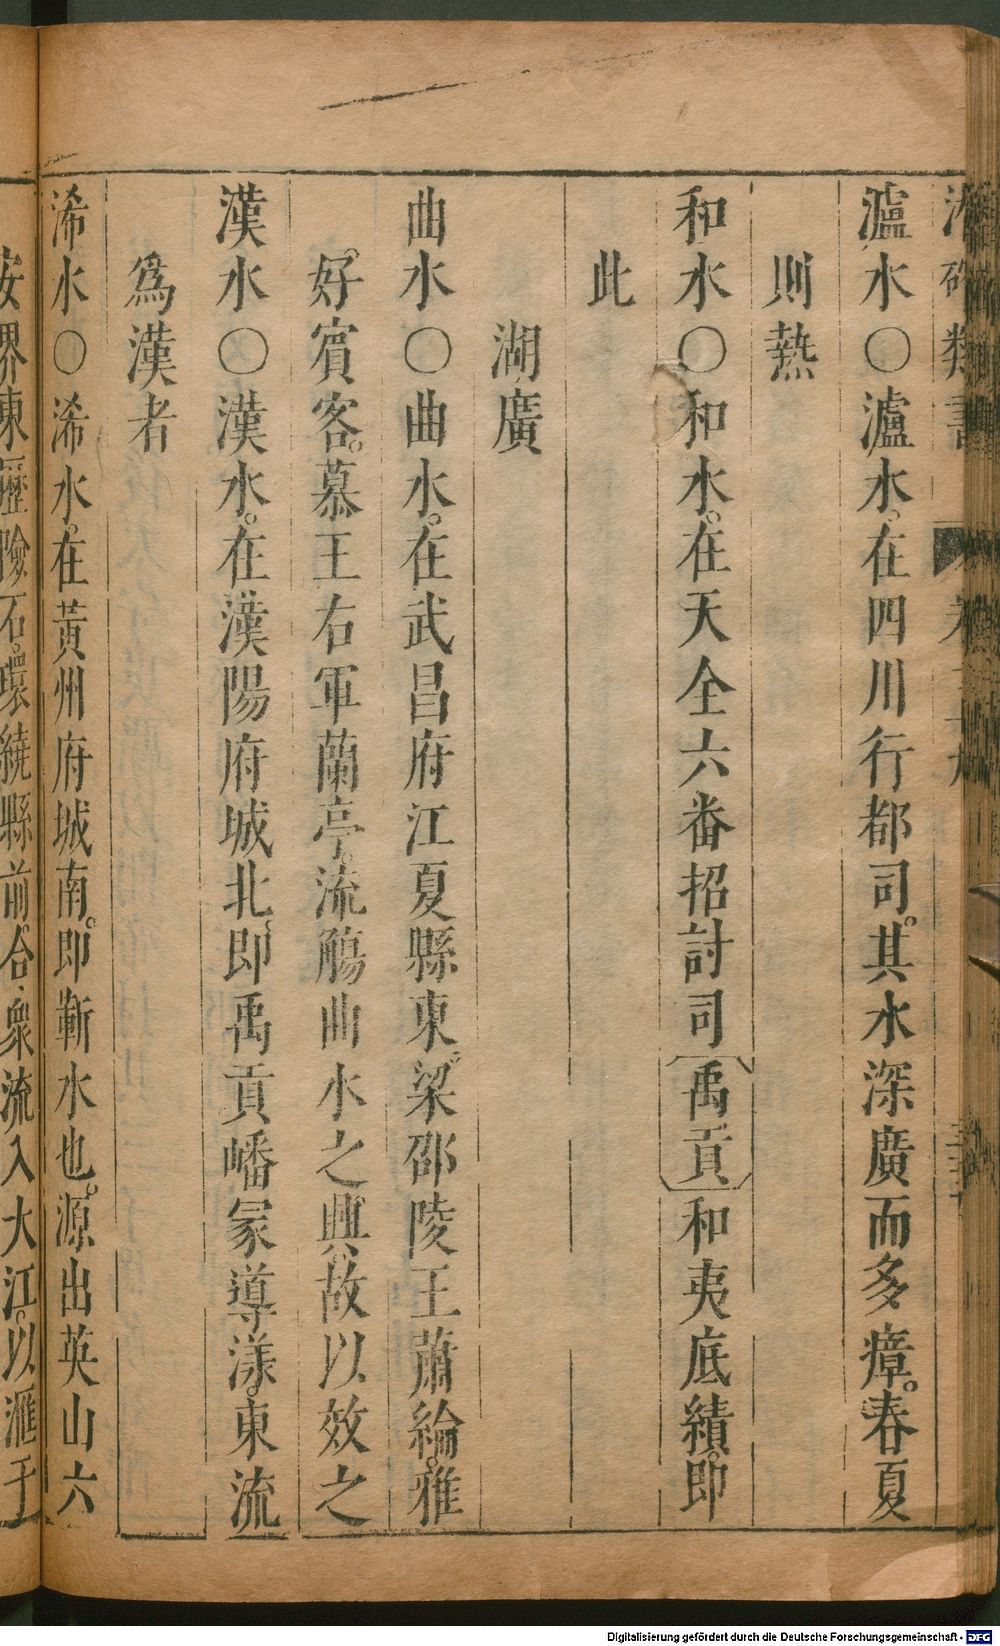 瀘水〇瀘水。在四川行都司。其水深廣而多瘴。春夏
則熱
和水〇和水。在天全六番招討司〔禹貢〕和夷底績。即
此
湖廣
曲水〇曲水。在武昌府江夏縣東。梁邵陵王蕭綸。雅
好賓客。慕王右軍蘭亭。流觴曲水之興。故以效之
漢水〇漢水。在漢陽府城北。即禹貢嶓冢導漾。東流
爲漢者
浠水〇浠水。在黃州府城南。即蘄水也。源出英山六
安界東歷險石。環繞縣前。合衆流入大江。以滙于
Digitalisierung gefördert durch die Deutsche Forschungsgemeinschaft - DFG